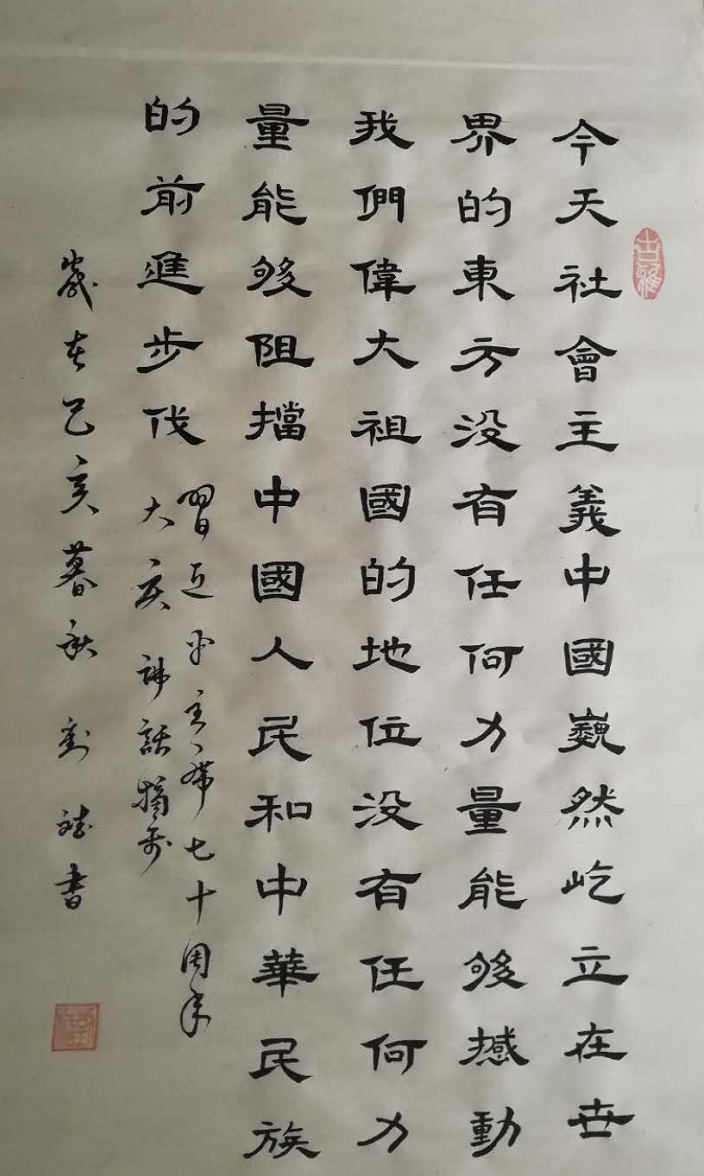 今天社會主義中國巍然屹立在世
界的東方没有任何力量能够撼動
我們偉大祖國的地位没有任何力
量能够阻擋中國人民和中華民族
的前進步伐
習近平主席七十周年
大慶講話摘录
歲在己亥暮秋 劉 書
古雅